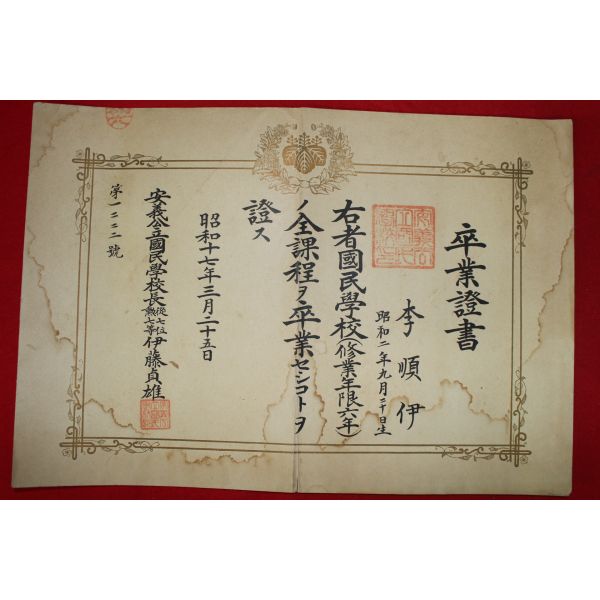 卒業證書
李順伊
昭和二年九月二十日生
右者國民學校(修業年限六年)
ノ全課程ヲ卒業セシコトヲ
證ス
昭和十七年三月二十五日
安義公立國民學校長從七位勳七等伊藤貞雄
第一二二二號